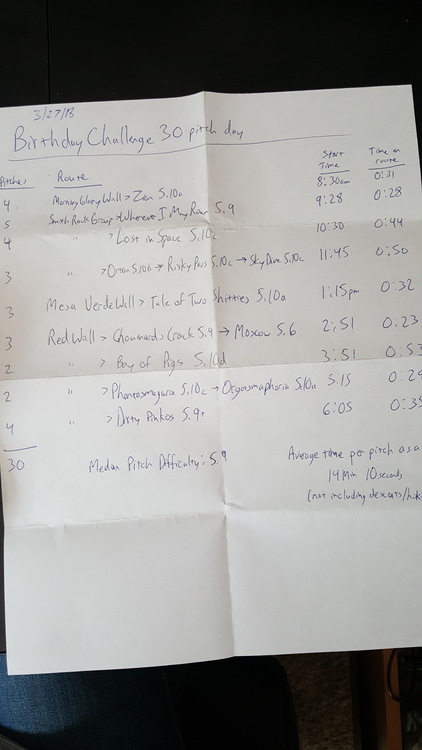 3/27/18
Birthday Challenge 30 pitch day
Pitches Route Start Time Time on route
4 Morning Glory Wall > Zion 5.10a 8:30am 0:31
5 Smith Rock Group > Wherever I May Roam 5.9 9:28 0:28
4 " > Lost in Space 5.10c 10:30 0:44
3 " > Orion 5.10b → Risky Pass 5.10c → Sky Dive 5.10c 11:45 0:50
3 Mesa Verde Wall > Tale of Two Shitties 5.10a 1:15pm 0:32
3 Red Wall > Chounard's Crack 5.9 → Moscow 5.6 2:51 0:23
2 " > Bay of Pigs 5.10d 3:51 0:53
2 " > Phantasmagoria 5.10c → Orgasmaphoria 5.10a 5:15 0:29
4 " > Dirty Pinkos 5.9+ 6:05 0:35
30 Median Pitch Difficulty: 5.9 Average time per pitch as a
14 Min 10 seconds
(not including descents/